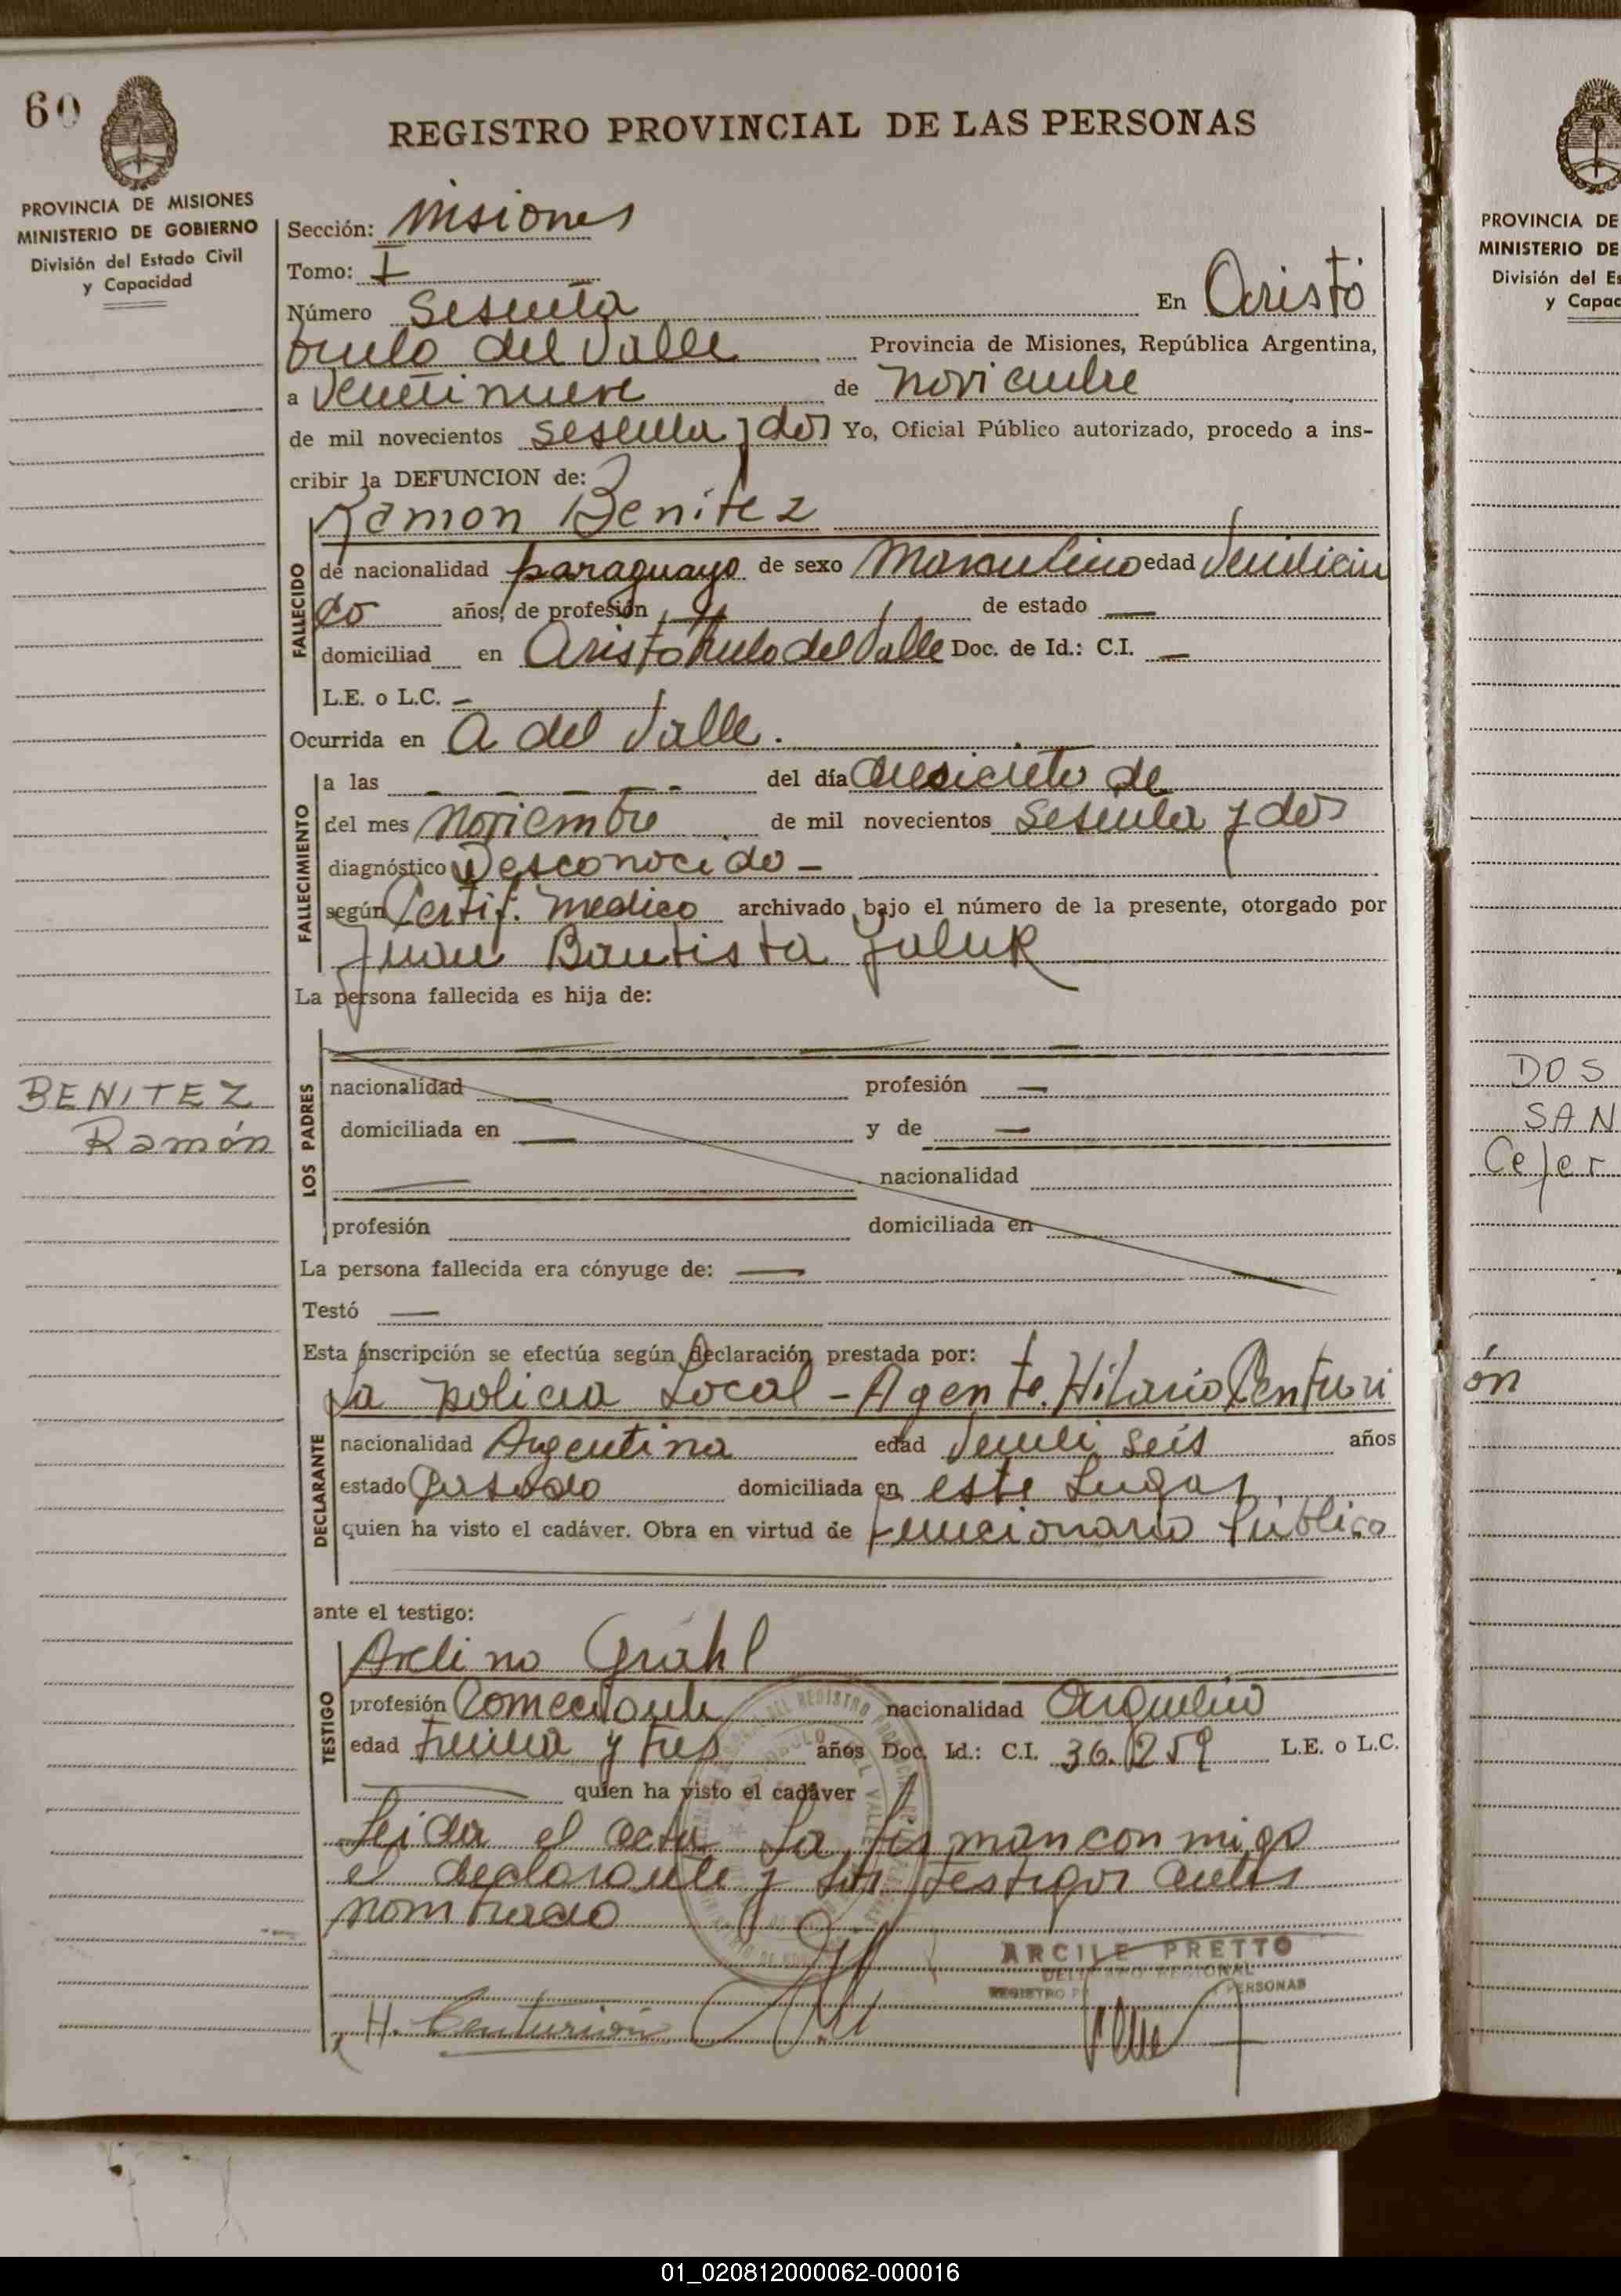 60
REGISTRO PROVINCIAL DE LAS PERSONAS
PROVINCIA DE MISIONES
MINISTERIO DE GOBIERNO
División del Estado Civil
y Capacidad
Sección: Misiones
Tomo: I
Número Sesenta En Aristó
bulo del Valle Provincia de Misiones, República Argentina,
a Veintinueve de noviembre
de mil novecientos sesenta y dos Yo, Oficial Público autorizado, procedo a ins-
cribir la DEFUNCION de:
Ramon Benítez
FALLECIDO
de nacionalidad paraguayo de sexo Masculino edad Veinticin
co años, de profesión de estado —
domiciliad en Aristóbulo del Valle Doc. de Id.: C.I. —
L.E. o L.C. –
Ocurrida en A del Valle.
FALLECIMIENTO
a las - - - - - del día de
del mes Noviembre de mil novecientos Sesenta y dos
diagnóstico Desconocido –
según Certif. Medico archivado bajo el número de la presente, otorgado por
Juan Bautista
La persona fallecida es hija de:
LOS PADRES
nacionalidad — profesión —
domiciliada en — y de —
nacionalidad
profesión domiciliada en
BENITEZ
Ramón
La persona fallecida era cónyuge de: —
Testó —
Esta inscripción se efectúa según declaración prestada por:
La policia Local - Agente. Hilario Centuri
ón
DECLARANTE
nacionalidad Argentina edad Veinti seis años
estado Casado domiciliada en este Lugar
quien ha visto el cadáver. Obra en virtud de Funcionario Público
ante el testigo:
TESTIGO
Avelino Grahl
profesión Comerciante nacionalidad Argentino
edad treinta y tres años Doc. Id.: C.I. 36.259 L.E. o L.C.
quien ha visto el cadáver
Leida el acta La firman conmigo
el declarante y los testigos antes
nombrado
ARCILE PRETTO
DELEGADO REGIONAL
REGISTRO PERSONAS
H. Centurión
PROVINCIA DE
MINISTERIO DE
División del Es
y Capac
DOS
SAN
Cefer
01_020812000062-000016